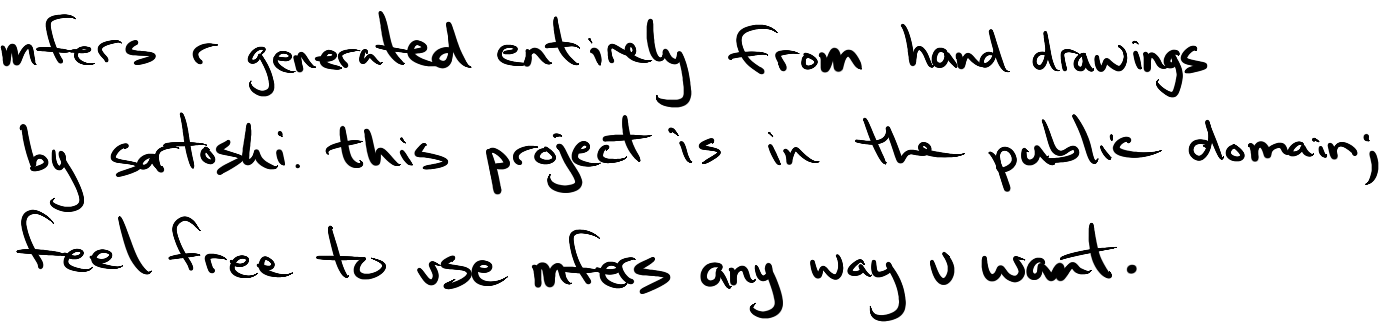 mfers r generated entirely from hand drawings
by sartoshi. this project is in the public domain;
feel free to use mfers any way u want.